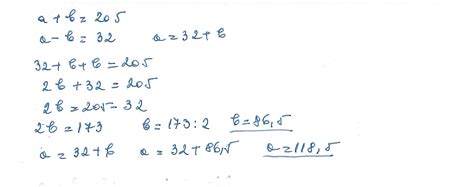 a + b = 205
a - b = 32 a = 32 + b
32 + b + b = 205
2b + 32 = 205
2b = 205 - 32
2b = 173 b = 173 : 2 b = 86,5
a = 32 + b a = 32 + 86,5 a = 118,5